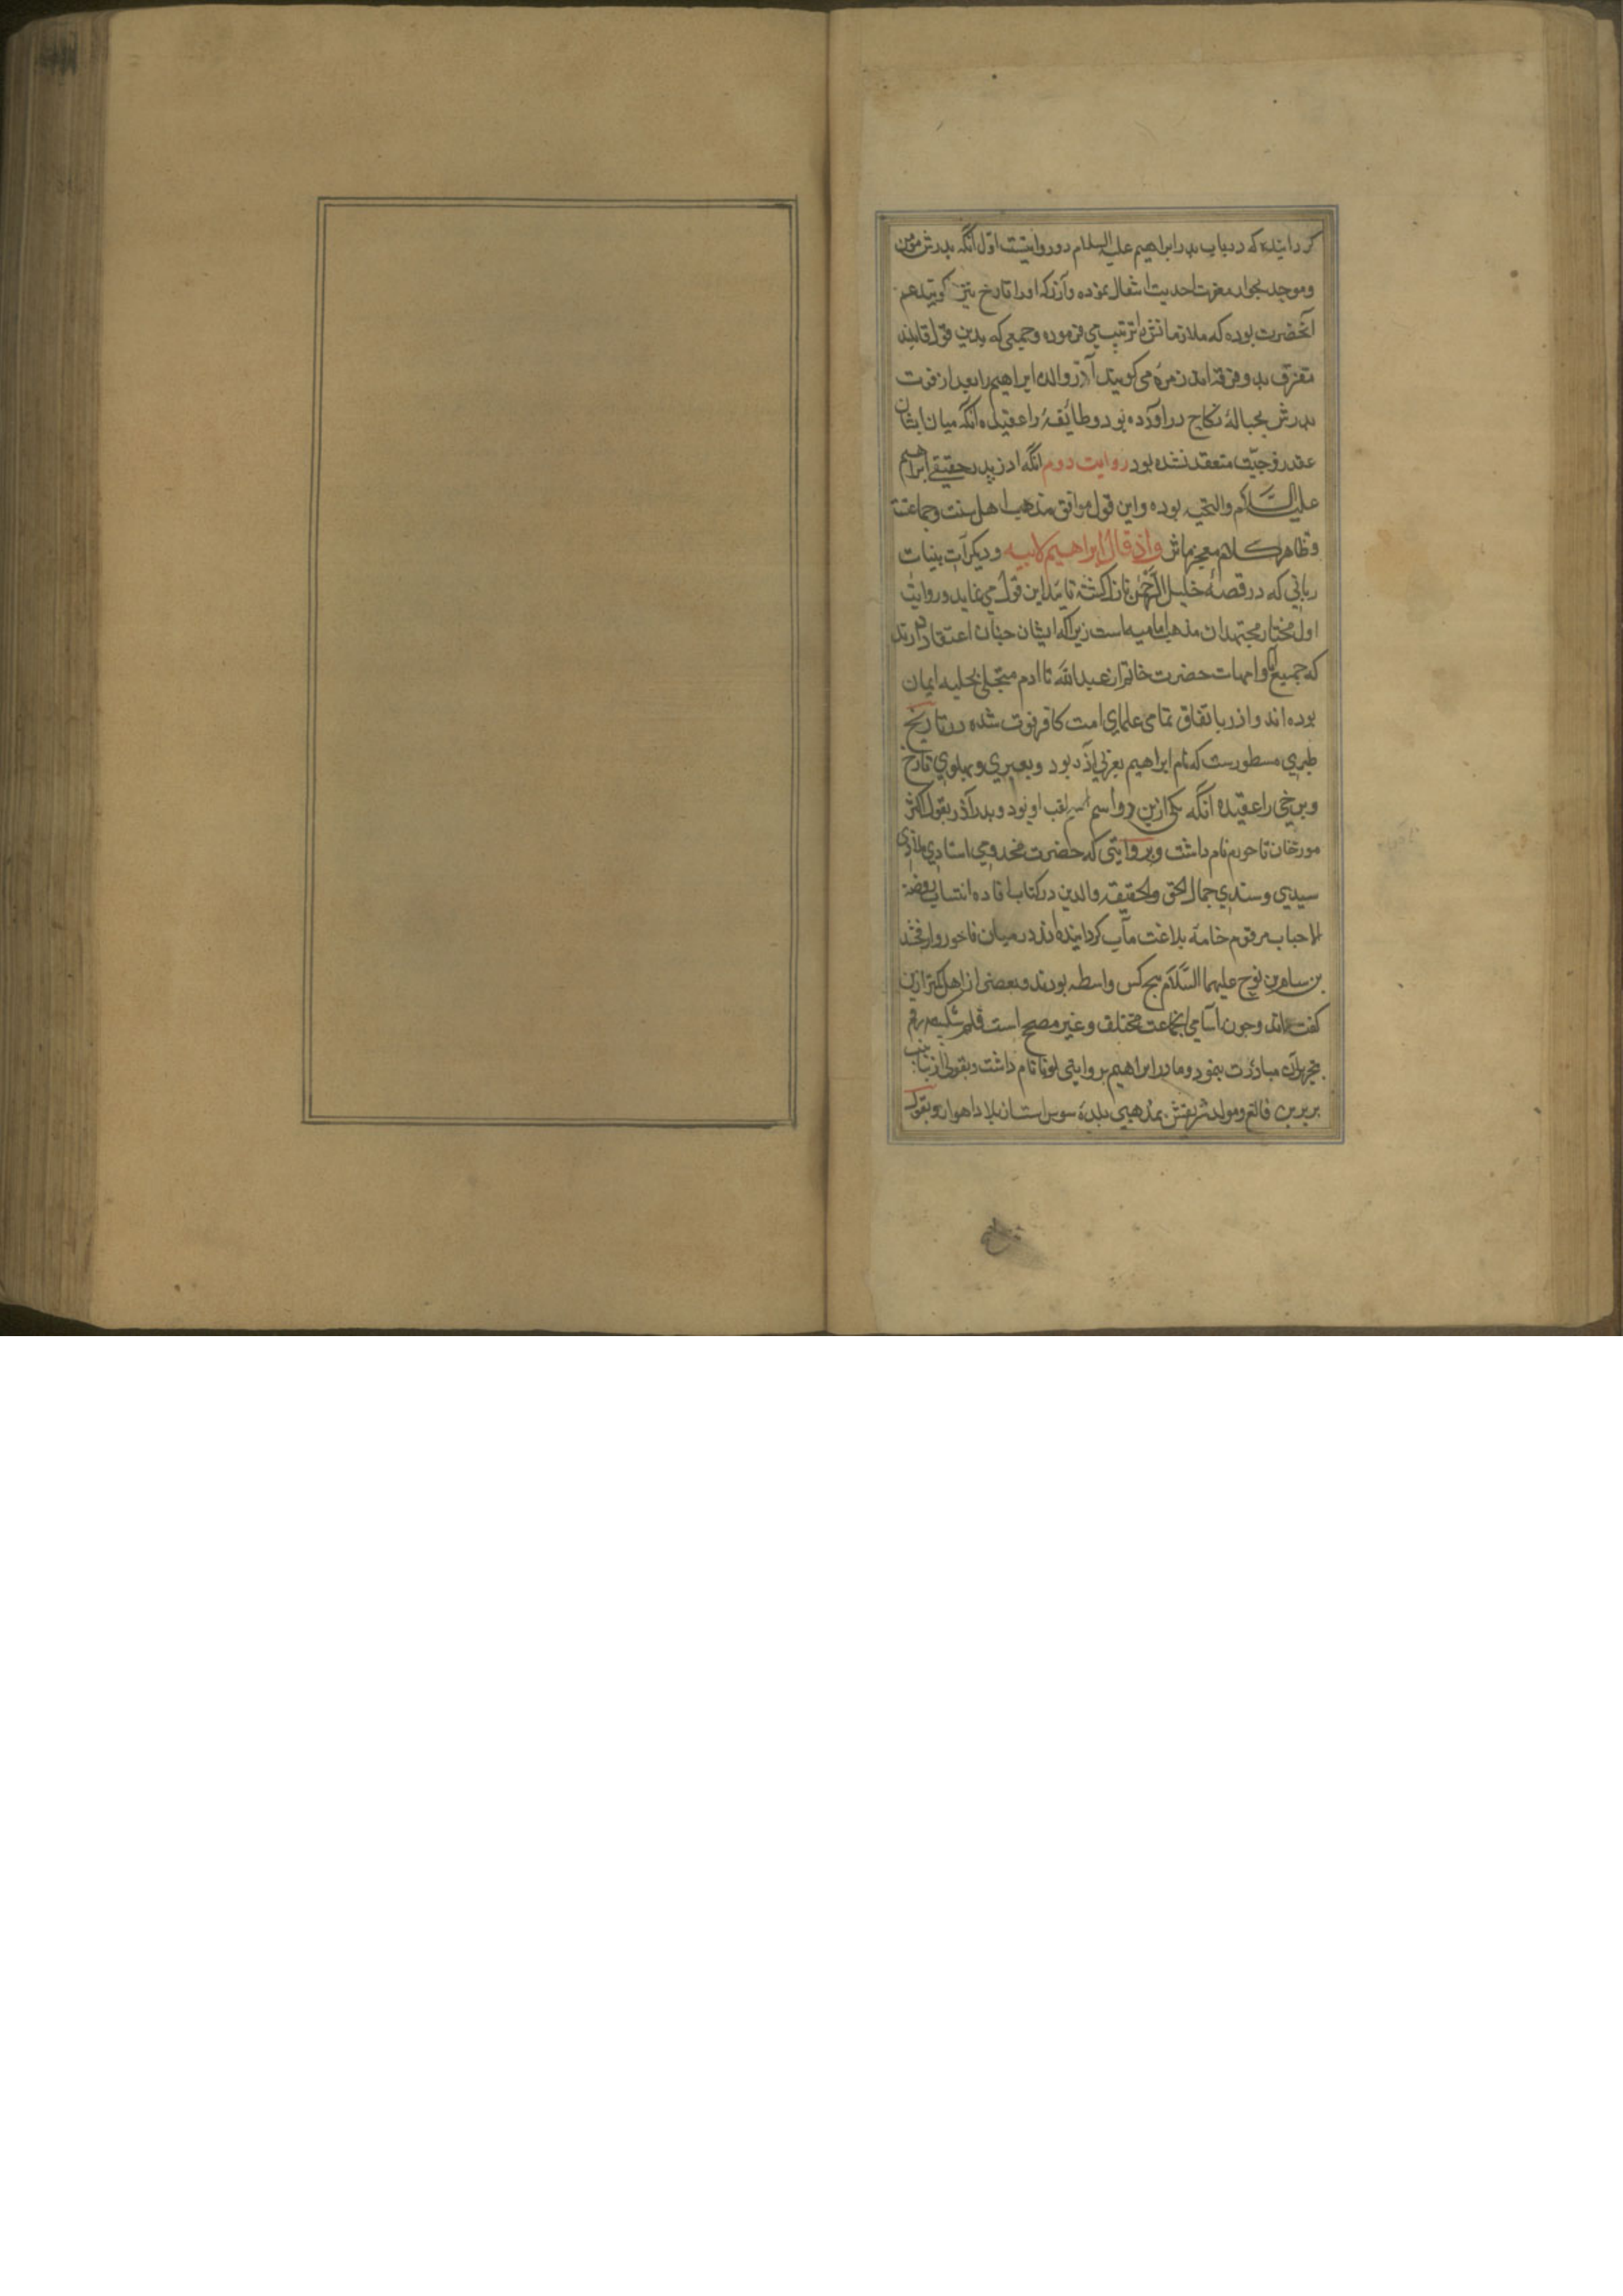 گردانیده که در باب پدر ابراهیم علیه السلام دو روایتست اول آنکه پدرش مومن
وموحد بجوار مغفرت احدیت انتقال نموده وآزر که اورا تارخ نیز گویند عم
آنحضرت بوده که ملازمانش را تربیت می فرموده وجمعی که بدین قول قایلند
متفرق بدو فرقه اند زمرهٔ می گویند آزر والدهٔ ابراهیم را بعد از فوت
پدرش بحبالهٔ نکاح در آورده بود وطائفهٔ را عقیده آنکه میان ایشان
عقد زوجیت منعقد نشده بود روایت دوم آنکه ازر پدر حقیقی ابراهیم
علیه السلام والتحیه بوده واین قول موافق مذهب اهل سنت وجماعتة
وظاهر کلام معجز واذ قال ابراهیم لابیه ودیگر آیات بینات
ربانی که در قصهٔ خلیل الرحمن نازل گشته تایید این قول می نماید وروایت
اول مختار مجتهدان مذهب امامیه است زیرا که ایشان چنان اعتقاد دارند
که جمیع آبا وامهات حضرت خاتم از عبدالله تا ادم متحلی بحلیه ایمان
بوده اند وازر باتفاق تمامی علمای امت کافر فوت شده در تاریخ
طبری مسطورست که نام ابراهیم بعربی آزر بود وبعبری وپهلوی تارخ
وبرخی را عقیده آنکه یکی ازین دو اسم لقب او بود وپدر آذر بقول اکثر
مورخان ناحور نام داشت وبروایتی که حضرت مخدومی استادی ملاذی
سیدی وسندی جمال الحق والحقیقه والدین در کتاب افاده انتساب روضة
الاحباب مرقوم خامهٔ بلاغت مآب گردانیده اند در میان ناخور وارفخشد
بن سام بن نوح علیهما السلام هیچ کس واسطه بودند وبعضی از اهل اکثر ازین
گفته اند وچون اسامی انجماعت مختلف وغیر مصحح است قلم شکسته رقم
بتحریر آن مبادرت ننمود ومادر ابراهیم بروایتی لونا نام داشت وبقولی
بربربن فالغ ومولد شریفش بمذهبی بلدهٔ سوس است از بلاد اهواز وبقول